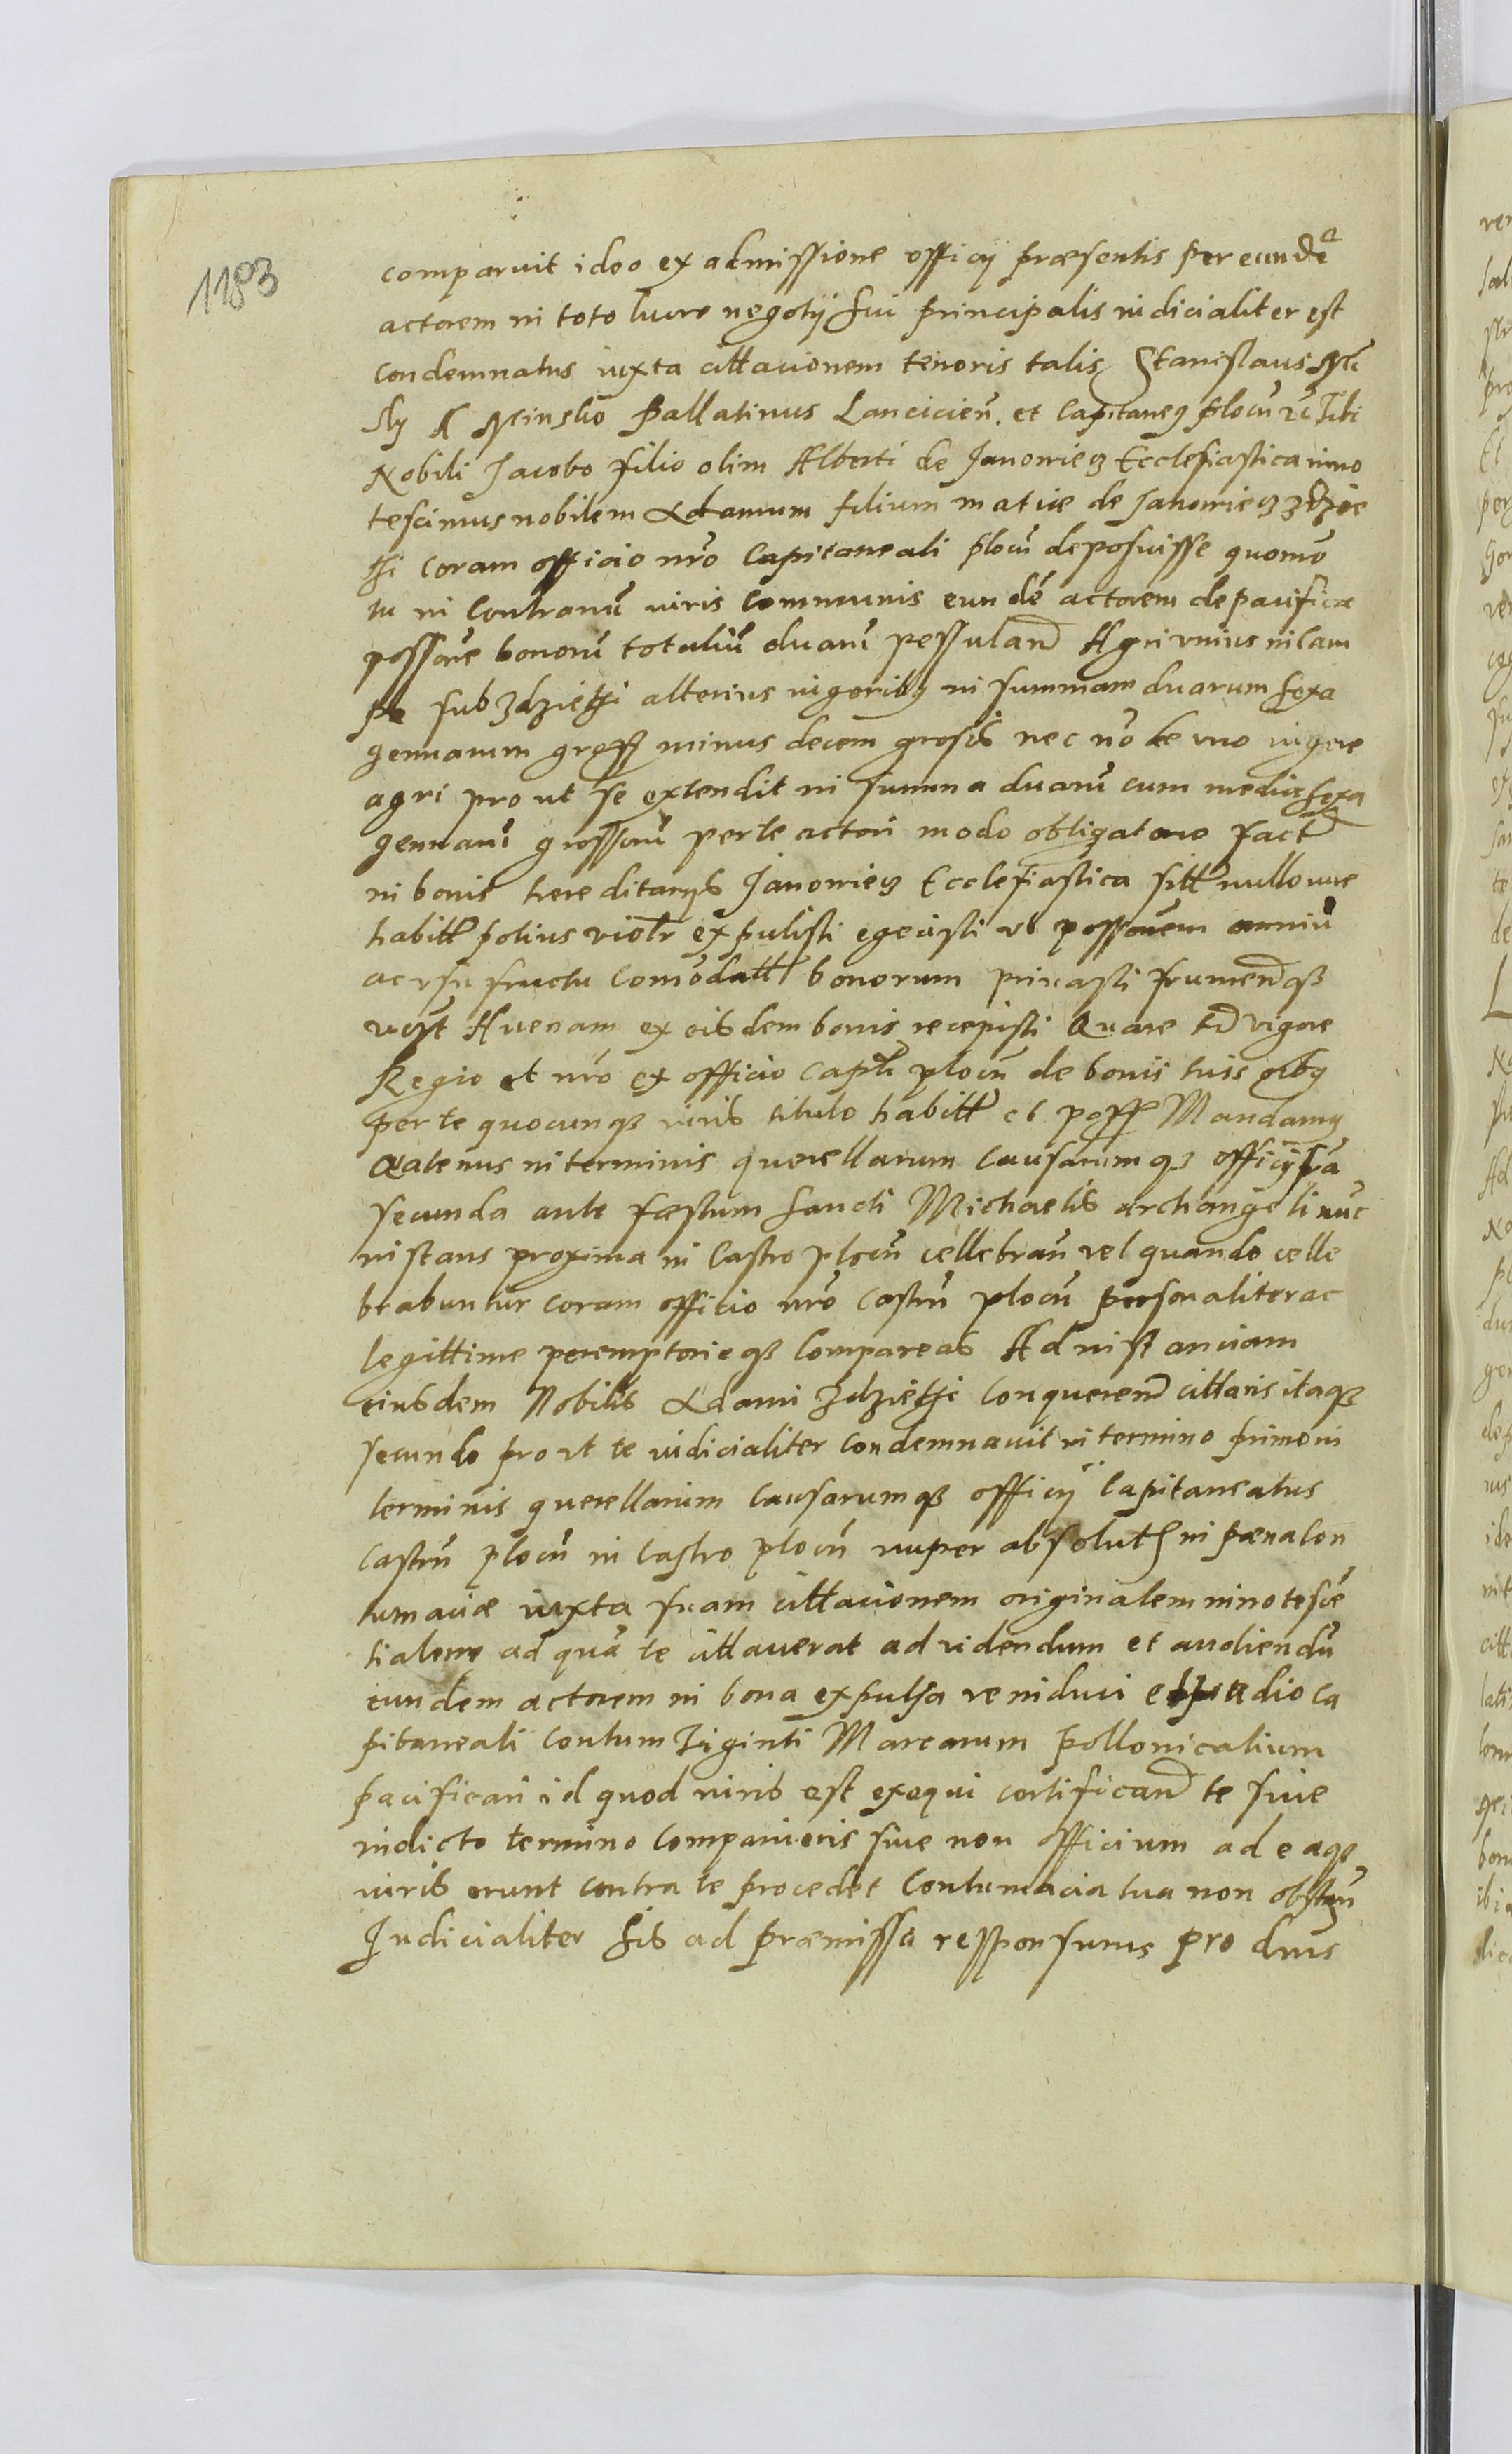 1183
comparuit ideo ex admissione officij præsentis per eundē
actorem in toto lucro negotij sui principalis iudicialiter est
condemnatus iuxta cittacionem tenoris talis Stanislaus
A Minsko Pallatinus Lancicień. et Capitaneus plocn̄ Tibi
Nobili Jacobo filio olim Alberti de Janowięta Ecclesiastica inno
tescimus nobilem Adamum filium mathiæ de Janowięta
coram officio nr̄o Capitaneali plocn̄ deposuisse quomō
tu in contrariū iuris communis eundē actorem de pacifica
possōne bonorū totaliū duarū pessuland Agri unius in
sub alterius in summam duarum sexa
genarum gross minus decem grosis nec nō de vno
agri pro ut se extendit in summa duarū cum media sexa
genarū grossorū per te actori modo obligatorio fact
in bonis hereditarys Janowięta Ecclesiastica sitt nullo iure
habitt potius violr expulisti egecisti et possōnem omniū
ac vsu fructu comōdatt bonorum priuasti frumentq
Auenam ex eisdem bonis recepisti Quare tibi vigore
Regio et nr̄o ex officio Captī plocn̄ de bonis tuis oībq
per te quocunqꝫ iuris titulo habitt et poss Mandamq
Quatenus in terminis querellarum causarumqꝫ officij
secunda ante festum sancti Michaelis archangeli nūc
instans proxima in Castro plocn̄ cellebran̄ vel quando celle
brabuntur coram officio nr̄o castrn̄ plocn̄ personaliter ac
legittime peremptorieqꝫ Compareas Ad instanciam
eiusdem Nobilis Adami Conquerend cittaris itaqꝫ
secundo pro vt te iudicialiter condemnauit in termino primo in
terminis querellarum causarumqꝫ officij Capitaneatus
castrn̄ plocn̄ in castro plocn̄ nuper absolut in pæna Con
tumaciæ iuxta suam cittacionem originalem innotescē
tialem ad quā te cittauerat ad videndum et audiendū
eundem actorem in bona expulsa reinduci Ca
pitaneali Centum Viginti Marcarum pollonicalium
pacificari id quod iuris est exequi certificand te siue
in dicto termino Compariueris siue non officium ad ea qꝫ
iuris erunt contra te procedet contumacia tua non obstan̄
Judicialiter Sis ad præmissa responsurus pro